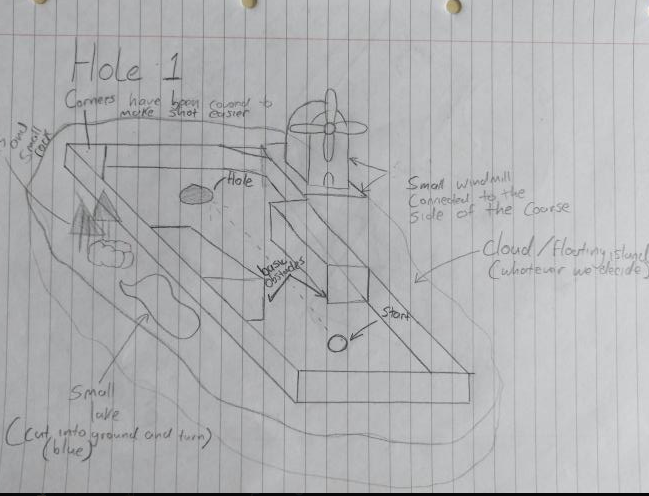 Hole 1
Corners have been coverd to
make shot easier
and
Small
rock
Hole
Small windmill
Connected to the
Side of the Course
Cloud / floating island
(whatever we decide)
basic
obstacles
Start
Small
lake
(Cut into ground and turn)
(blue)